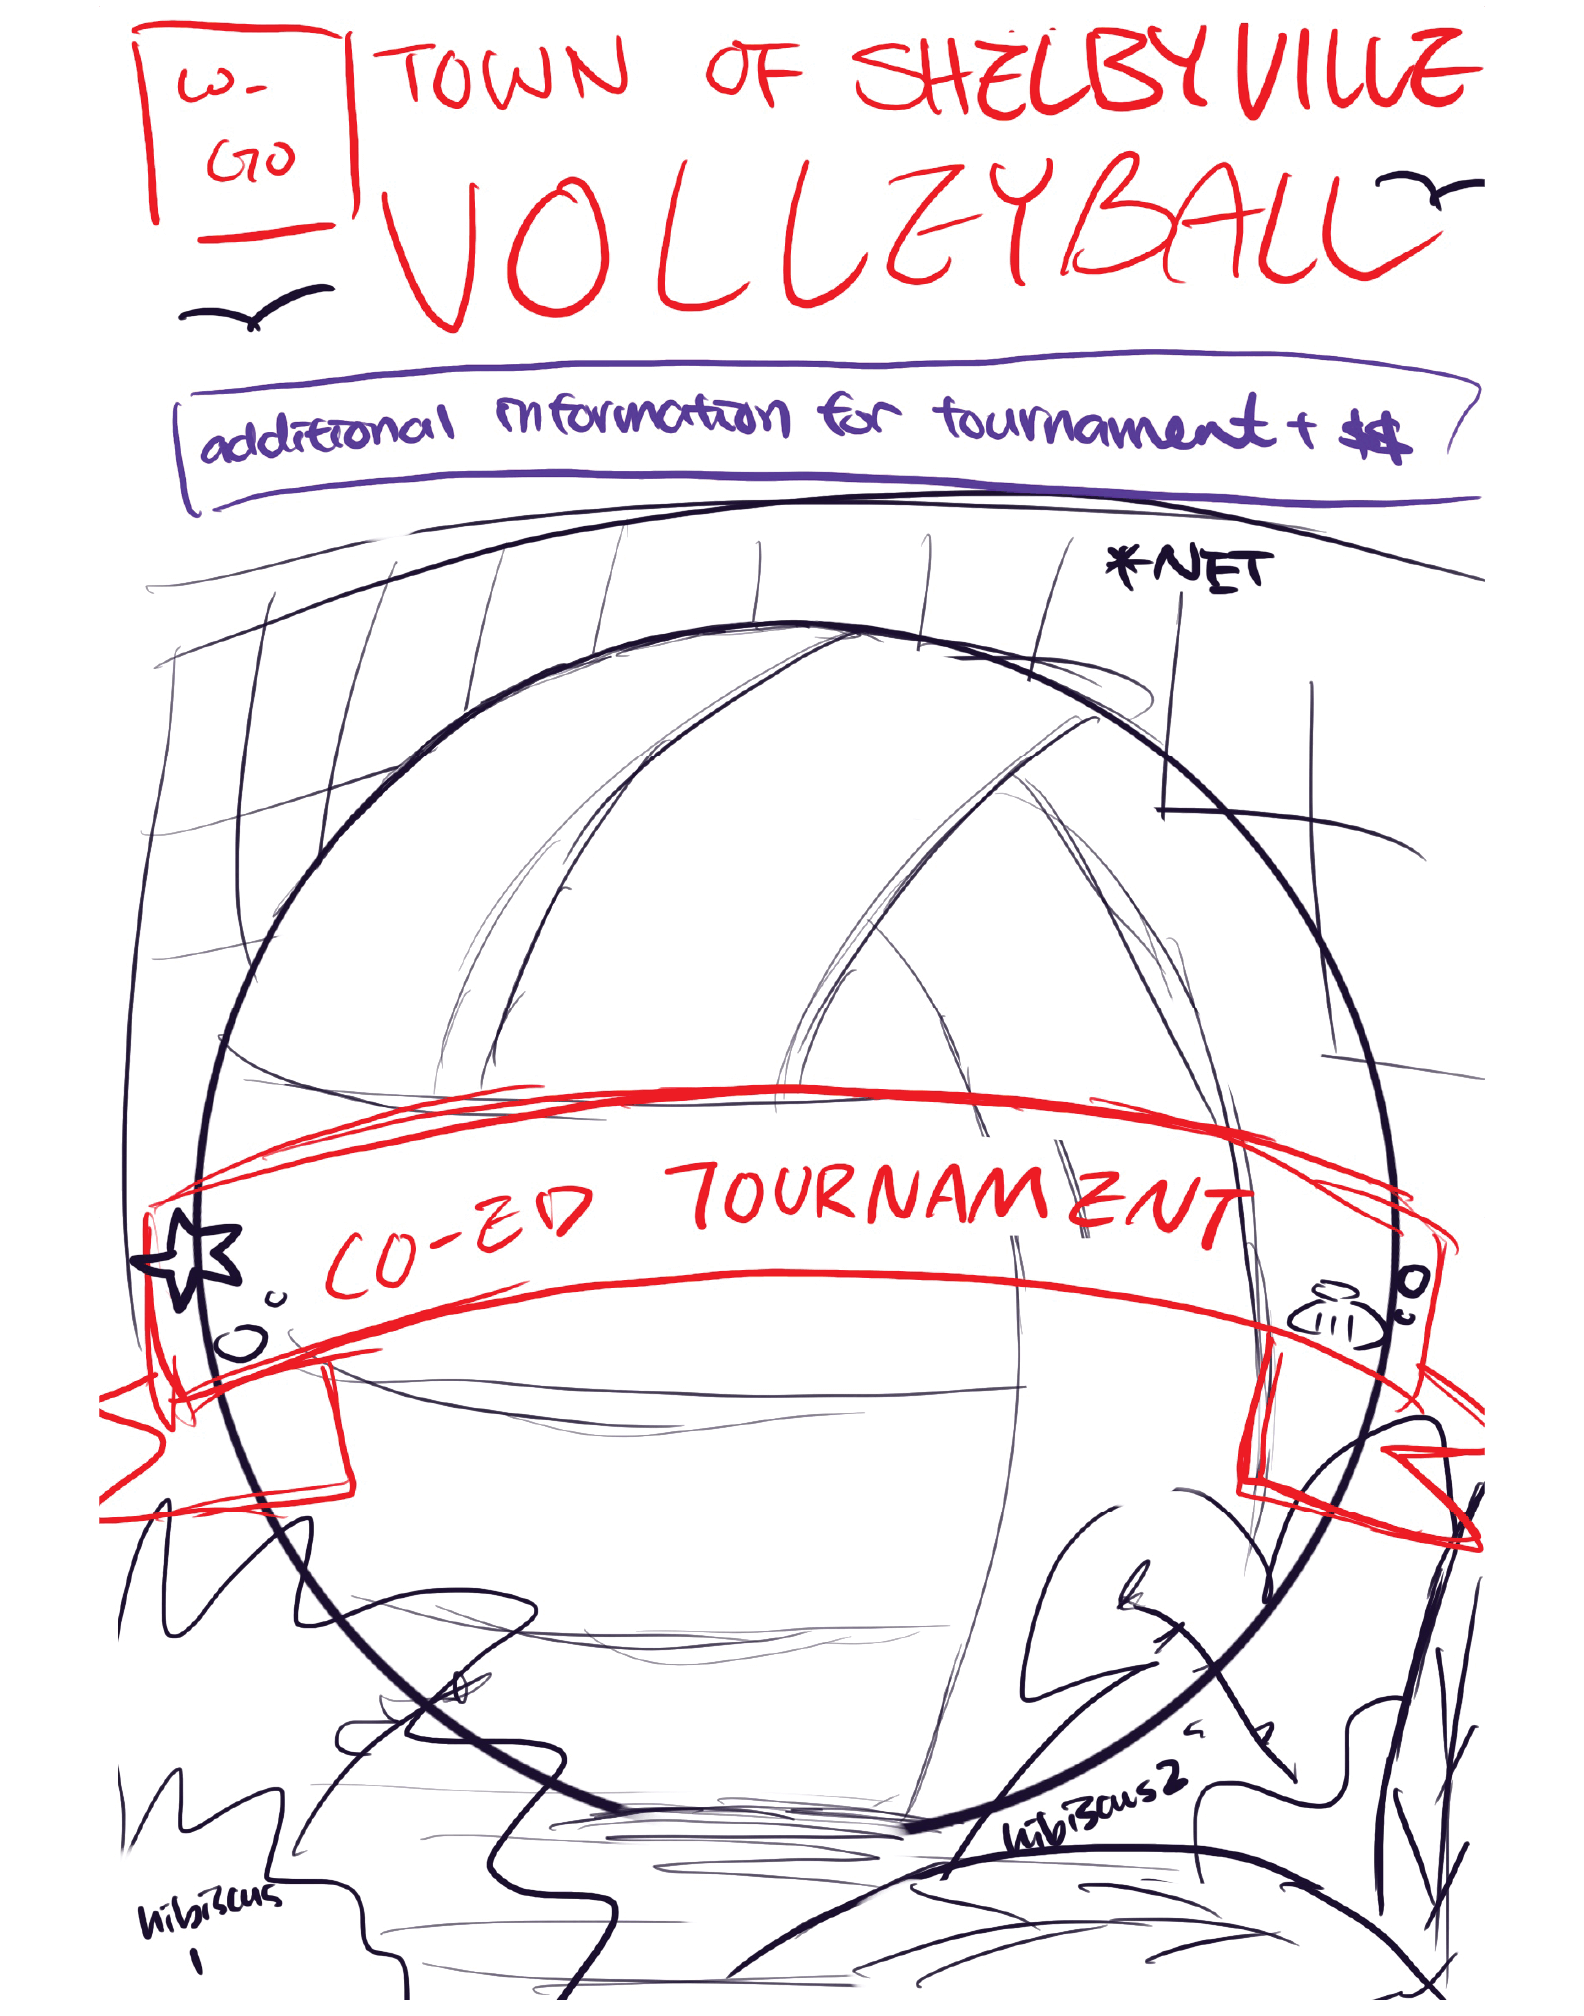 LO-
GO
TOWN OF SHELBYVILLE
VOLLEYBALL
additional information for tournament + $$
*NET
CO-ED TOURNAMENT
hibiscus 2
hibiscus
1